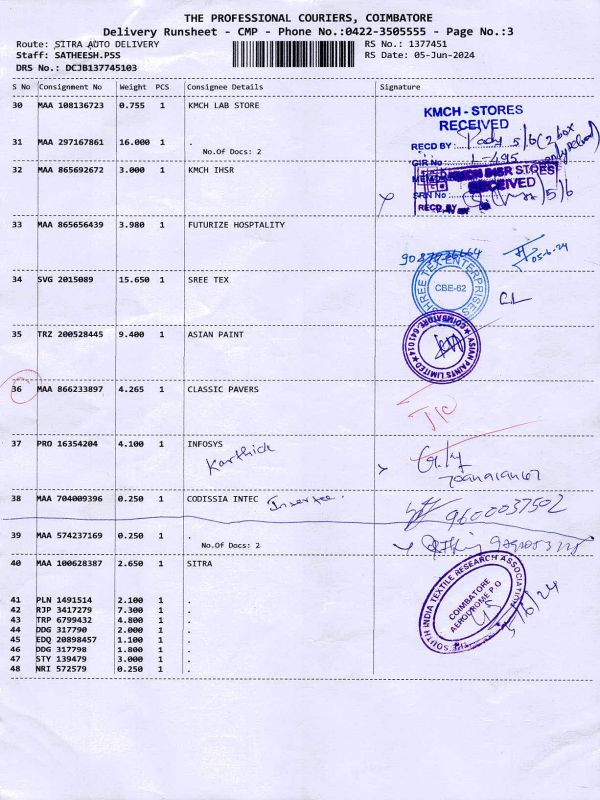 THE PROFESSIONAL COURIERS, COIMBATORE
Delivery Runsheet - CMP - Phone No.:0422-3505555 - Page No.:3
Route: SITRA AUTO DELIVERY RS No.: 1377451
Staff: SATHEESH.PSS RS Date: 05-Jun-2024
DRS No.: DCJB137745103
S No Consignment No Weight PCS Consignee Details Signature
30 MAA 108136723 0.755 1 KMCH LAB STORE
KMCH - STORES
RECEIVED
31 MAA 297167861 16.000 1 .
No.Of Docs: 2
RECD BY: 5/6 (2 box
GIR No L-495
32 MAA 865692672 3.000 1 KMCH IHSR
STORES
RECEIVED
SRN No
RECD. BY
33 MAA 865656439 3.980 1 FUTURIZE HOSPTALITY
05-6-24
34 SVG 2015089 15.650 1 SREE TEX
SHREE TEX ENTERPRISES
CBE-62
35 TRZ 200528445 9.400 1 ASIAN PAINT
ASIAN PAINTS LIMITED ★ COIMBATORE-641014 ★
36 MAA 866233897 4.265 1 CLASSIC PAVERS
37 PRO 16354204 4.100 1 INFOSYS
Karthick
38 MAA 704009396 0.250 1 CODISSIA INTEC
9600037502
39 MAA 574237169 0.250 1 .
No.Of Docs: 2
40 MAA 100628387 2.650 1 SITRA
SOUTH INDIA TEXTILE RESEARCH ASSOCIATION
COIMBATORE
AERODROME P.O
41 PLN 1491514 2.100 1 .
42 RJP 3417279 7.300 1 .
43 TRP 6799432 4.800 1 .
44 DDG 317790 2.000 1 .
45 EDQ 20898457 1.100 1 .
46 DDG 317798 1.800 1 .
47 STY 139479 3.000 1 .
48 NRI 572579 0.250 1 .